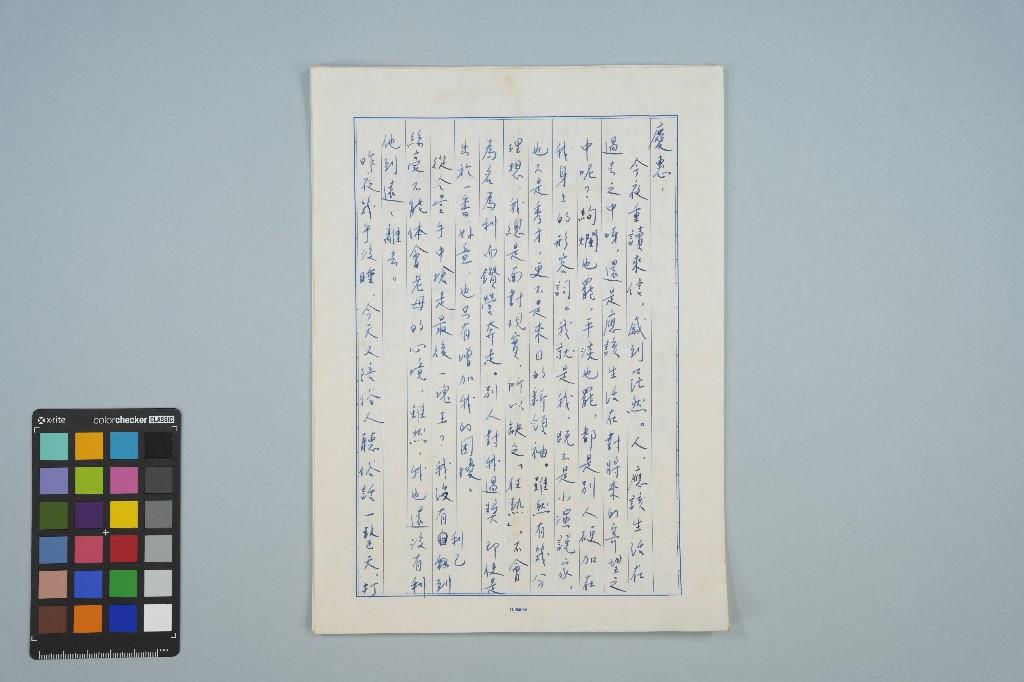 慶惠：
今夜重讀來信，感到茫然。人，應該生活在
過去之中呀，還是應該生活在對將來的希望之
中呢？絢爛也罷，平淡也罷，都是別人硬加在
我身上的形容詞。我就是我，既不是小演說家，
也不是秀才，更不是來日的新領袖。雖然有幾分
理想，我總是面對現實，所以缺乏「狂熱」，不會
為名為利而鑽營奔走。別人對我過獎，即使是
出於一番好意，也只有增加我的困擾。
從寡母手中搶走最後一塊玉？我沒有利己到
絲毫不能体會老母的心境，雖然，我也還沒有利
他到遠遠離去。
昨夜幾乎沒睡，今天又陪俗人聽俗話一整天，打
x-rite
colorchecker CLASSIC